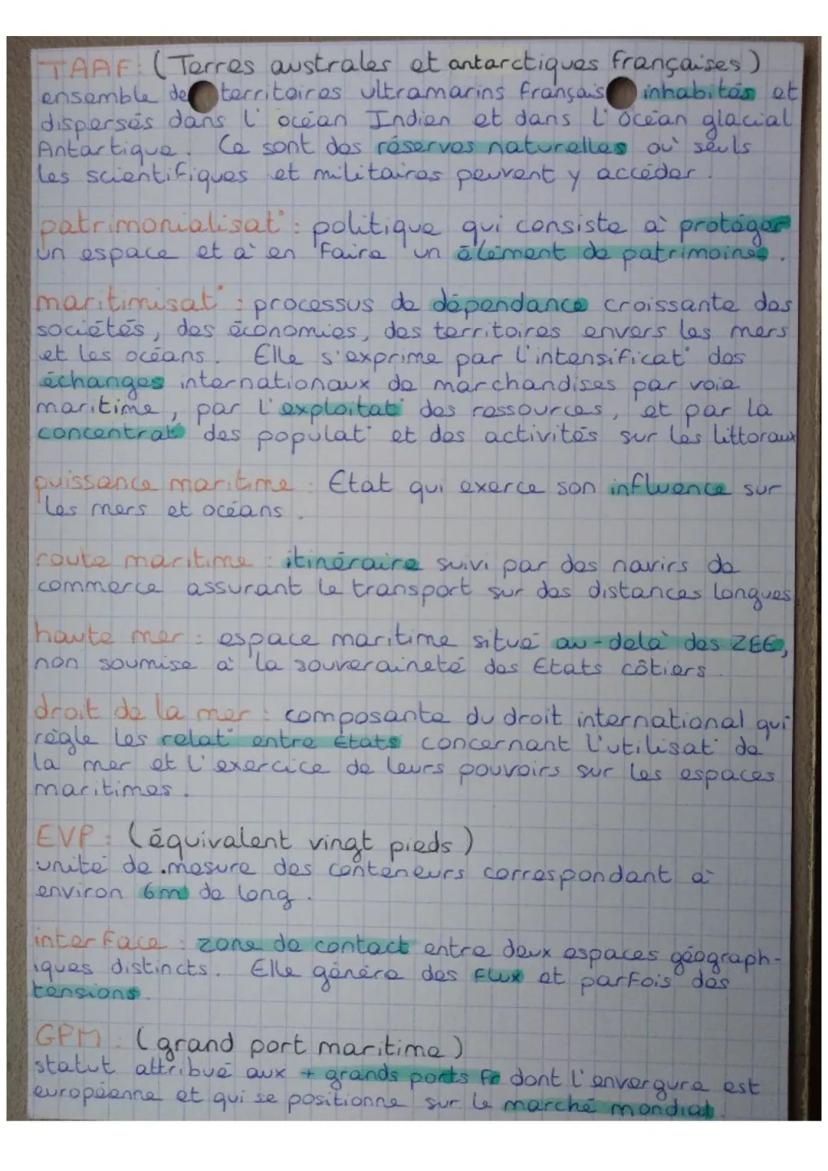 TAAF : (Terres australes et antarctiques françaises)
ensemble de territoires ultramarins français inhabités et
dispersés dans l'océan Indien et dans l'océan glacial
Antartique. Ce sont des réserves naturelles où seuls
les scientifiques et militaires peuvent y accéder.
patrimonialisat° : politique qui consiste à protéger
un espace et à en faire un élément de patrimoine.
maritimisat° : processus de dépendance croissante des
sociétés, des économies, des territoires envers les mers
et les océans. Elle s'exprime par l'intensificat° des
échanges internationaux de marchandises par voie
maritime, par l'exploitat° des ressources, et par la
concentrat° des populat° et des activités sur les littoraux
puissance maritime : Etat qui exerce son influence sur
les mers et océans.
route maritime : itinéraire suivi par des navirs de
commerce assurant le transport sur des distances longues
haute mer : espace maritime situé au-delà des ZEE,
non soumise à la souveraineté des Etats côtiers.
droit de la mer : composante du droit international qui
règle les relat° entre Etats concernant l'utilisat° de
la mer et l'exercice de leurs pouvoirs sur les espaces
maritimes.
EVP : (équivalent vingt pieds)
unité de mesure des conteneurs correspondant à
environ 6m de long.
interface : zone de contact entre deux espaces géograph-
iques distincts. Elle génère des flux et parfois des
tensions.
GPM : (grand port maritime)
statut attribué aux + grands ports fr dont l'envergure est
européenne et qui se positionne sur le marché mondial.